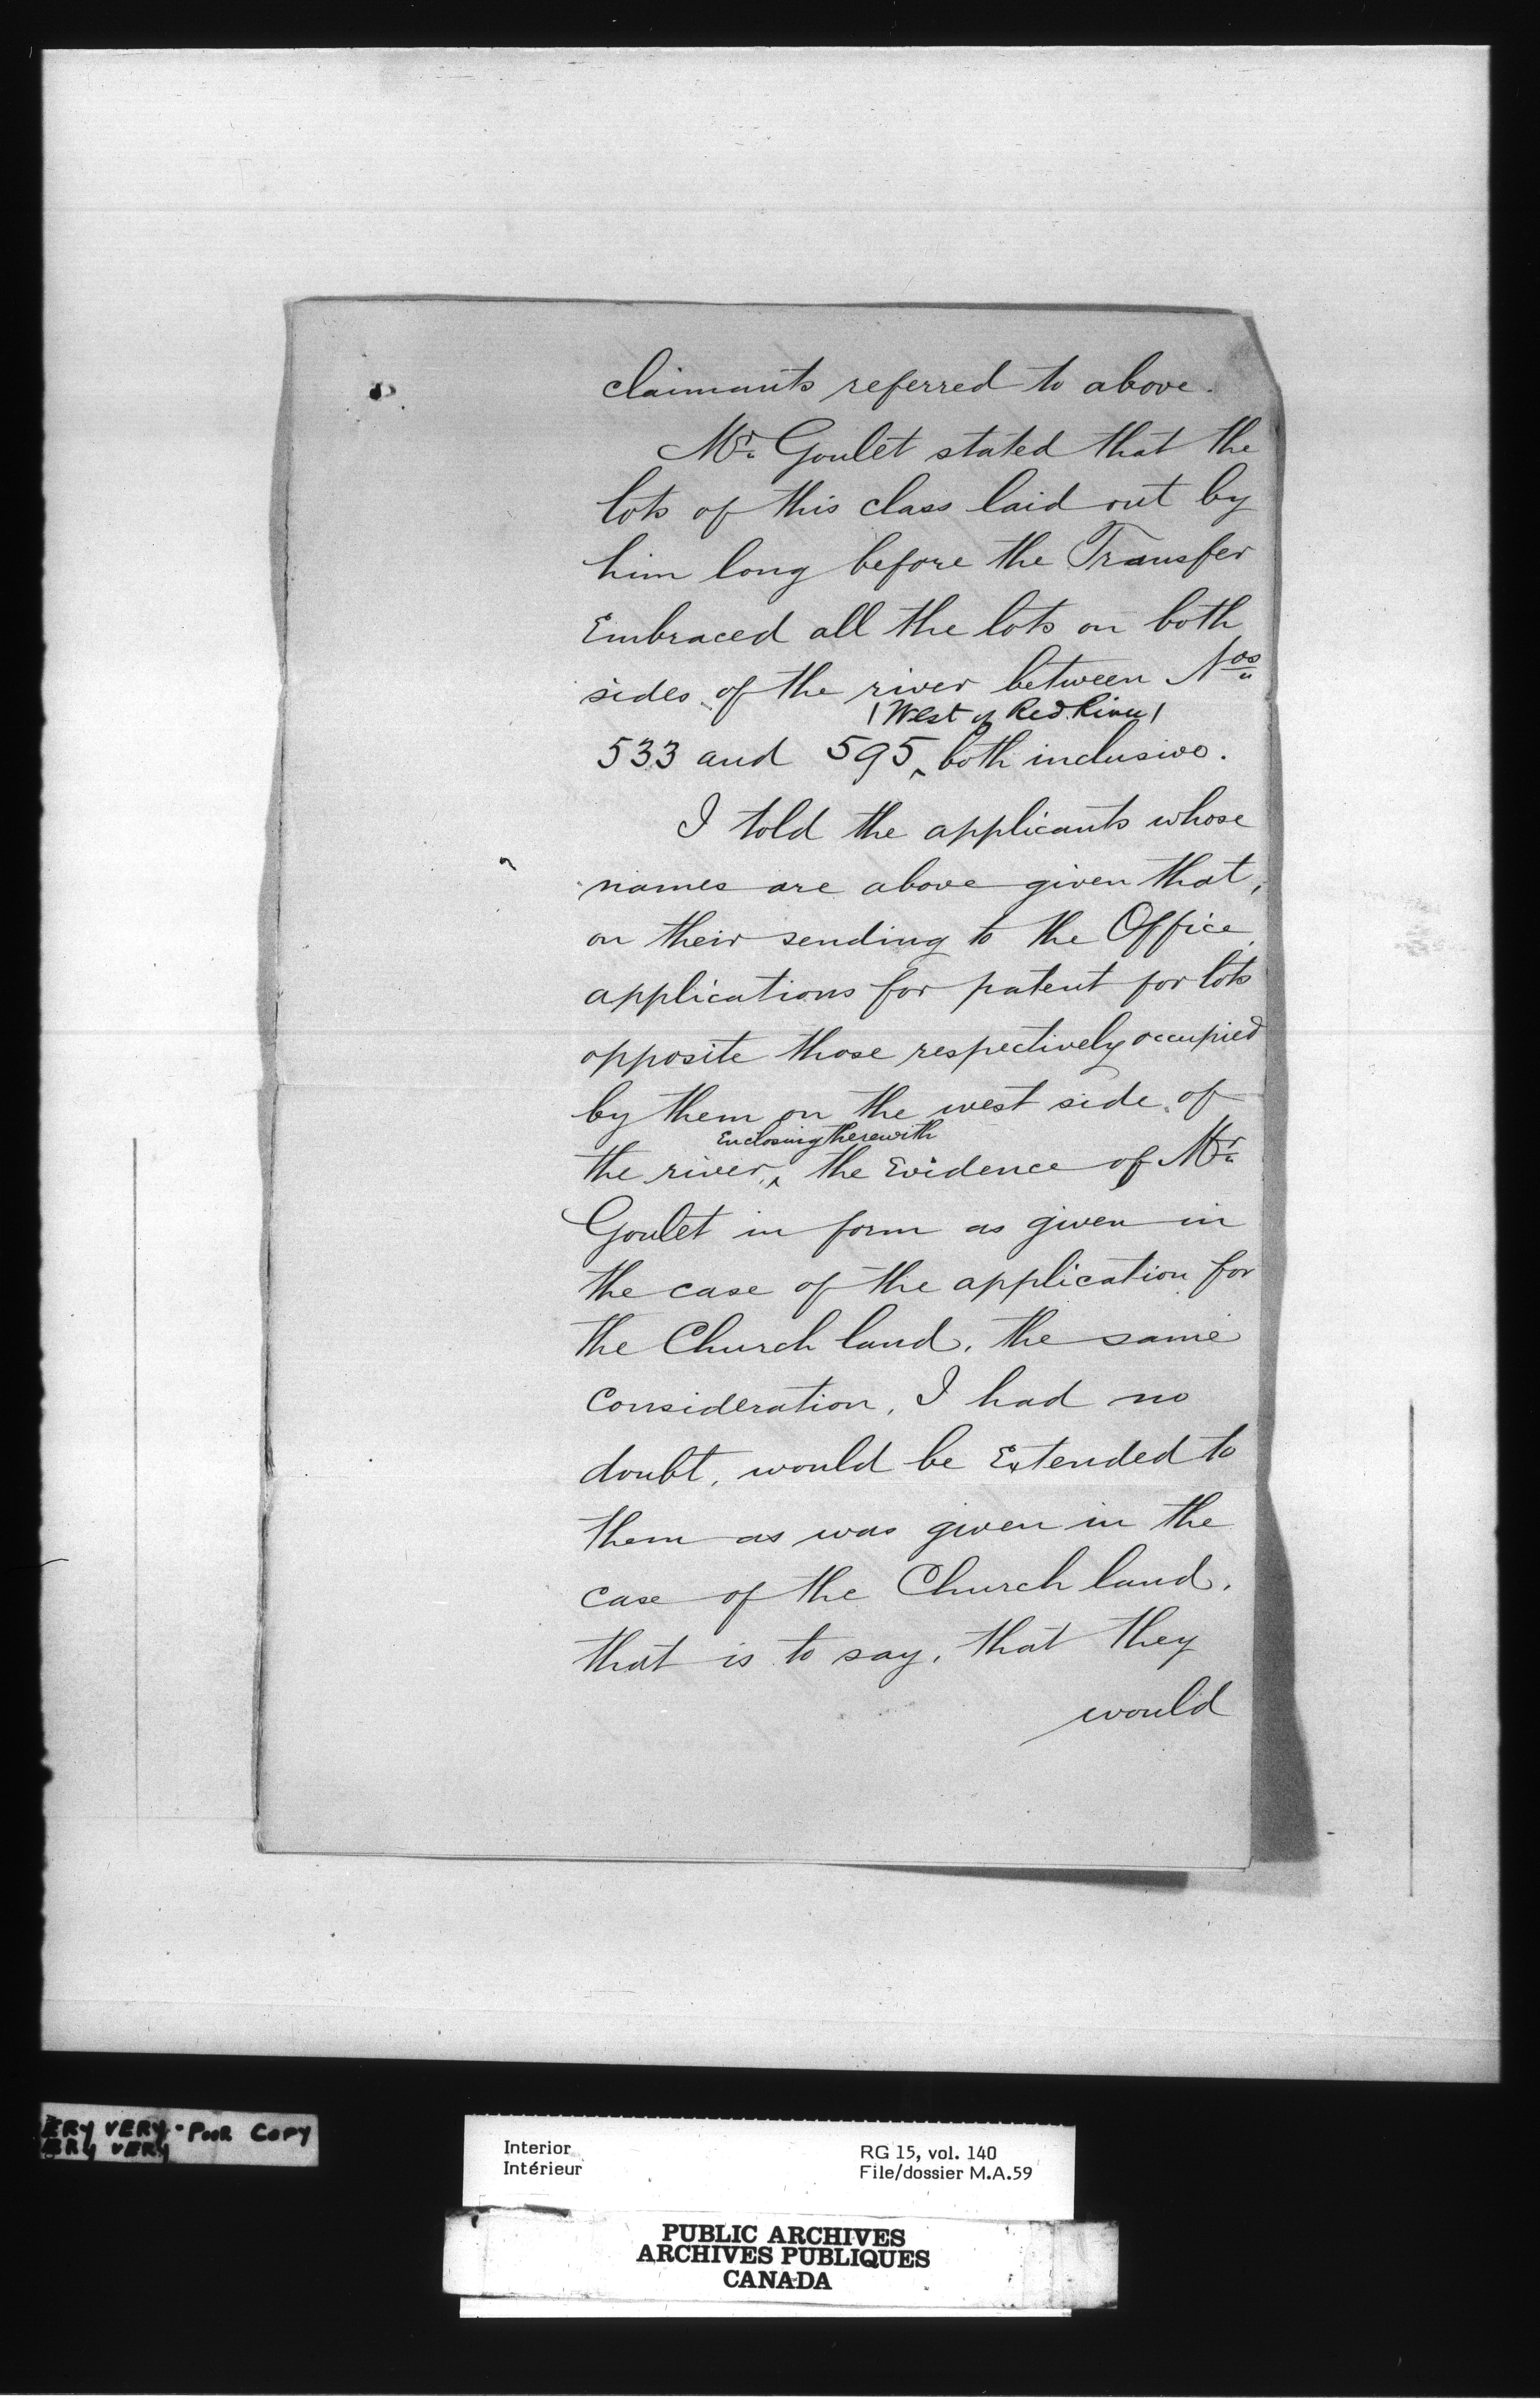 claimants referred to above.
Mr. Goulet stated that the
lots of this class laid out by
him long before the Transfer
Embraced all the lots on both
sides of the river between Nos
(West of Red River)
533 and 595, both inclusive.
I told the applicants whose
names are above given that,
on their sending to the Office,
applications for patent for lots
opposite those respectively occupied
by them on the west side of
Enclosing therewith
the river, the Evidence of Mr.
Goulet in form as given in
the case of the application for
the Church land, the same
Consideration, I had no
doubt, would be Extended to
them as was given in the
case of the Church land,
that is to say, that they
would
ERY VERY - POOR COPY
ERY VERY
Interior
Intérieur
RG 15, vol. 140
File/dossier M.A.59
PUBLIC ARCHIVES
ARCHIVES PUBLIQUES
CANADA